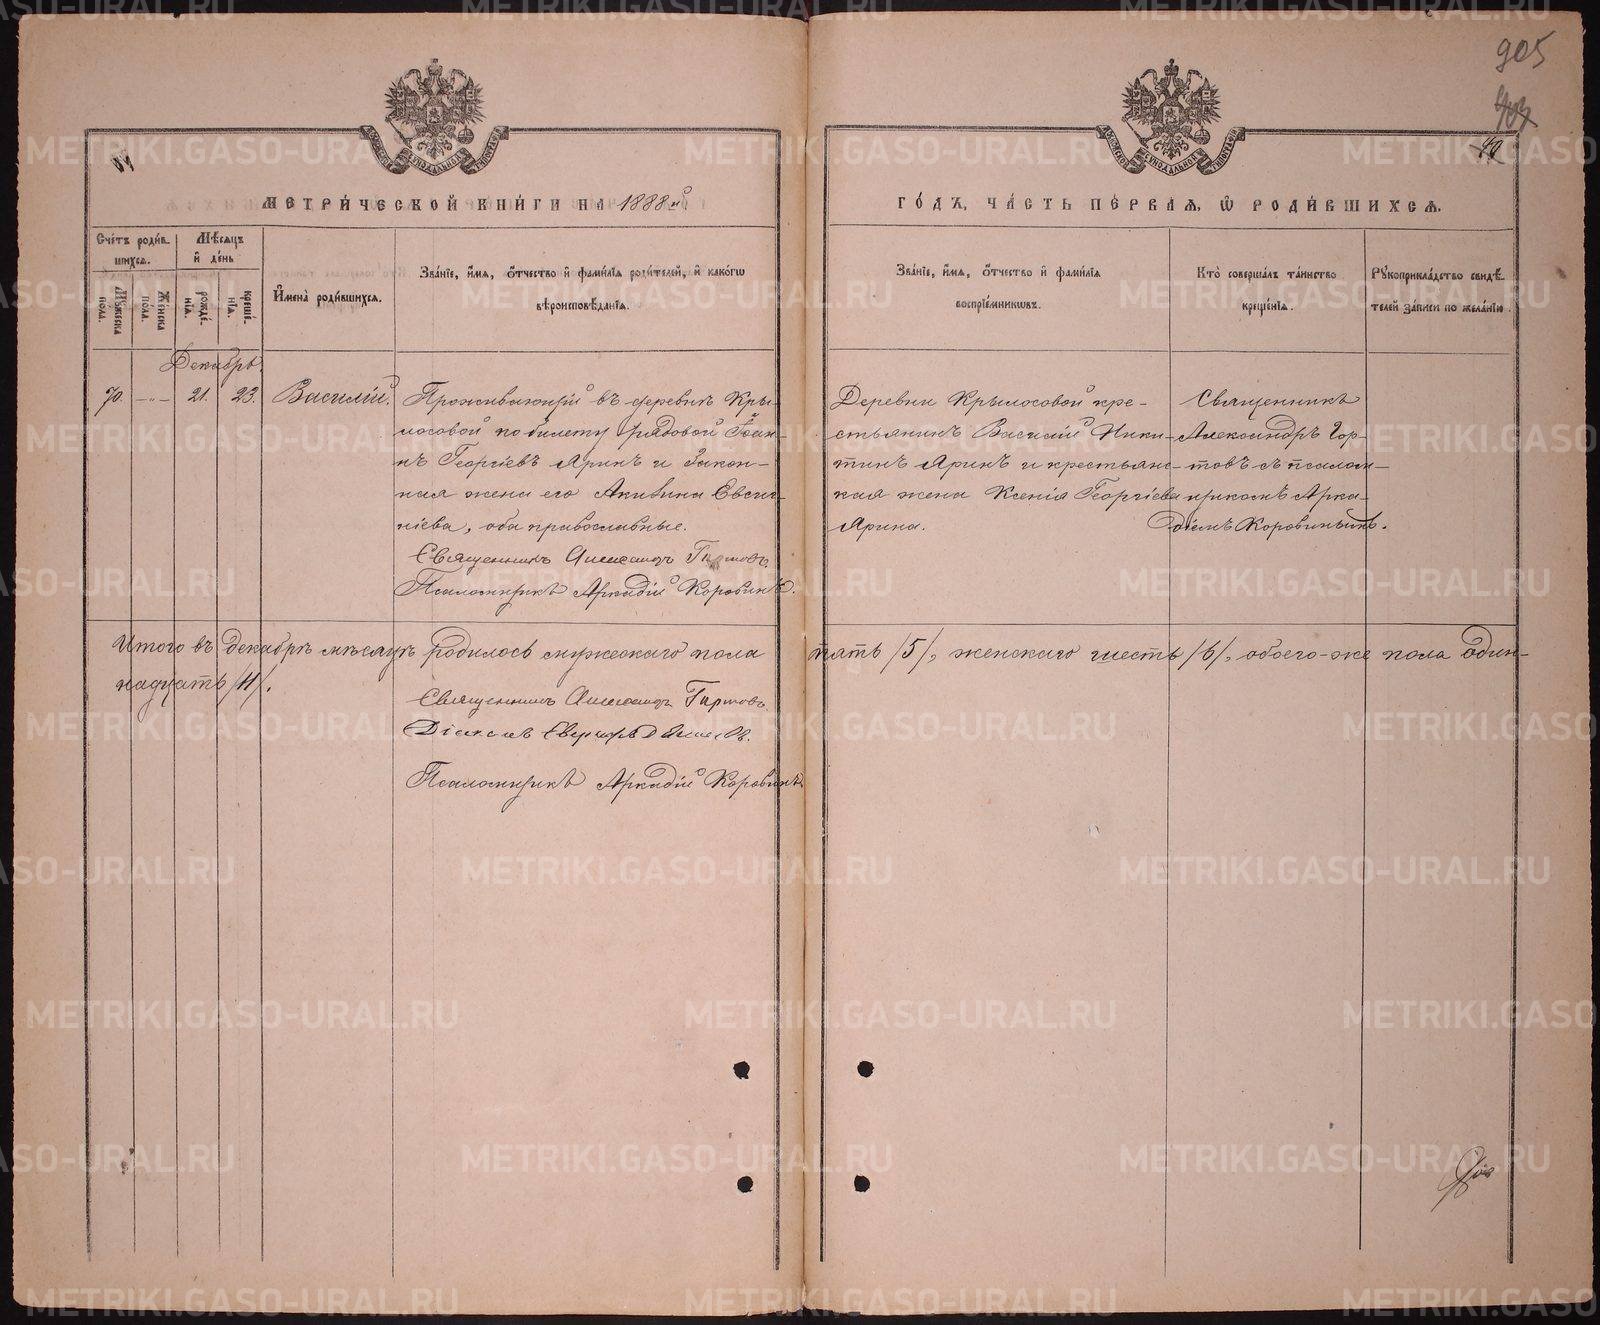 905
40
МЕТРИ́ЧЕСКОЙ КНИ́ГИ НА 1888й
ГО́ДЪ, ЧА́СТЬ ПЕ́РВАЯ, Ѽ РОДИ́ВШИХСЯ.
Сче́тъ роди́вшихся.
Му́жеска по́ла.
Же́нска по́ла.
Мѣ́сяцъ и҆ де́нь
рожде́нїя.
креще́нїя.
И҆мена̀ роди́вшихся.
Зва́нїе, и҆́мя, ѻ҆́тчество и҆ фами́лїя роди́телей, и҆ како́гѡ
вѣроисповѣ́данїя.
Зва́нїе, и҆́мя, ѻ҆́тчество и҆ фами́лїя
воспрїе́мниковъ.
Кто̀ соверша́лъ та́инство
креще́нїя.
Рꙋкоприкла́дство свидѣ́телей за́писи по жела́нїю.
Декабрь.
70. —„— 21. 23. Василій.
Проживающій въ деревнѣ Кры-
лосовой по билету рядовой Іоан-
нъ Георгіевъ Яринъ и закон-
ная жена его Акилина Евсиг-
ніева, оба православные.
Священникъ Александръ Гортовъ
Псаломщикъ Аркадій Коровинъ.
Деревни Крылосовой кре-
стьянинъ Василій Ники-
тинъ Яринъ и крестьянс-
кая жена Ксенія Георгіева
Ярина.
Священникъ
Александръ Гор-
товъ съ псалом-
щикомъ Арка-
діемъ Коровинымъ.
Итого въ декабрѣ мѣсяцѣ родилось мужескаго пола пять /5/, женскаго шесть /6/, обоего-же пола один-
надцать /11/.
Священникъ Александръ Гортовъ
Діаконъ
Псаломщикъ Аркадій Коровинъ
METRIKI.GASO-URAL.RU